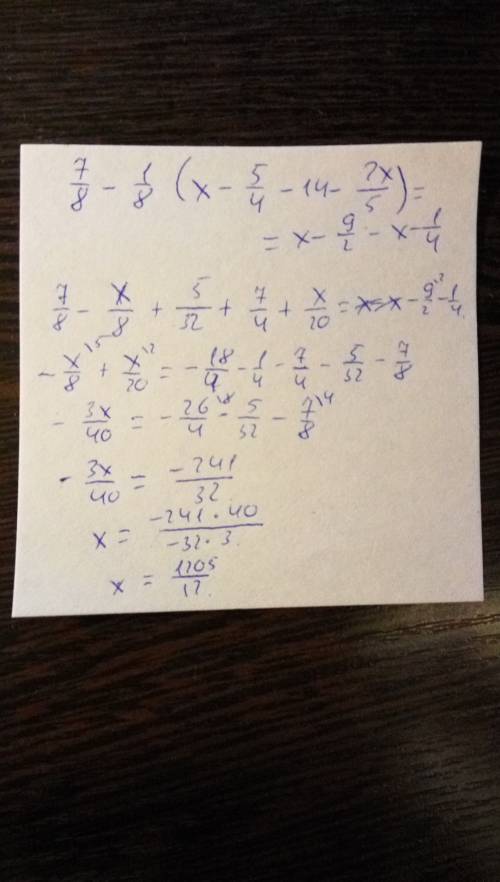 7/8 - 1/8 (x - 5/4 - 14 - 2x/5) =
= x - 9/2 - x - 1/4
7/8 - x/8 + 5/32 + 7/4 + x/20 = - 9/2\2 - 1/4
- x/8\5 + x/20\2 = - 18/4 - 1/4 - 7/4 - 5/32 - 7/8
- 3x/40 = - 26/4\8 - 5/32 - 7/8\4
- 3x/40 = -241/32
x = -241·40/-32·3
x = 1205/12